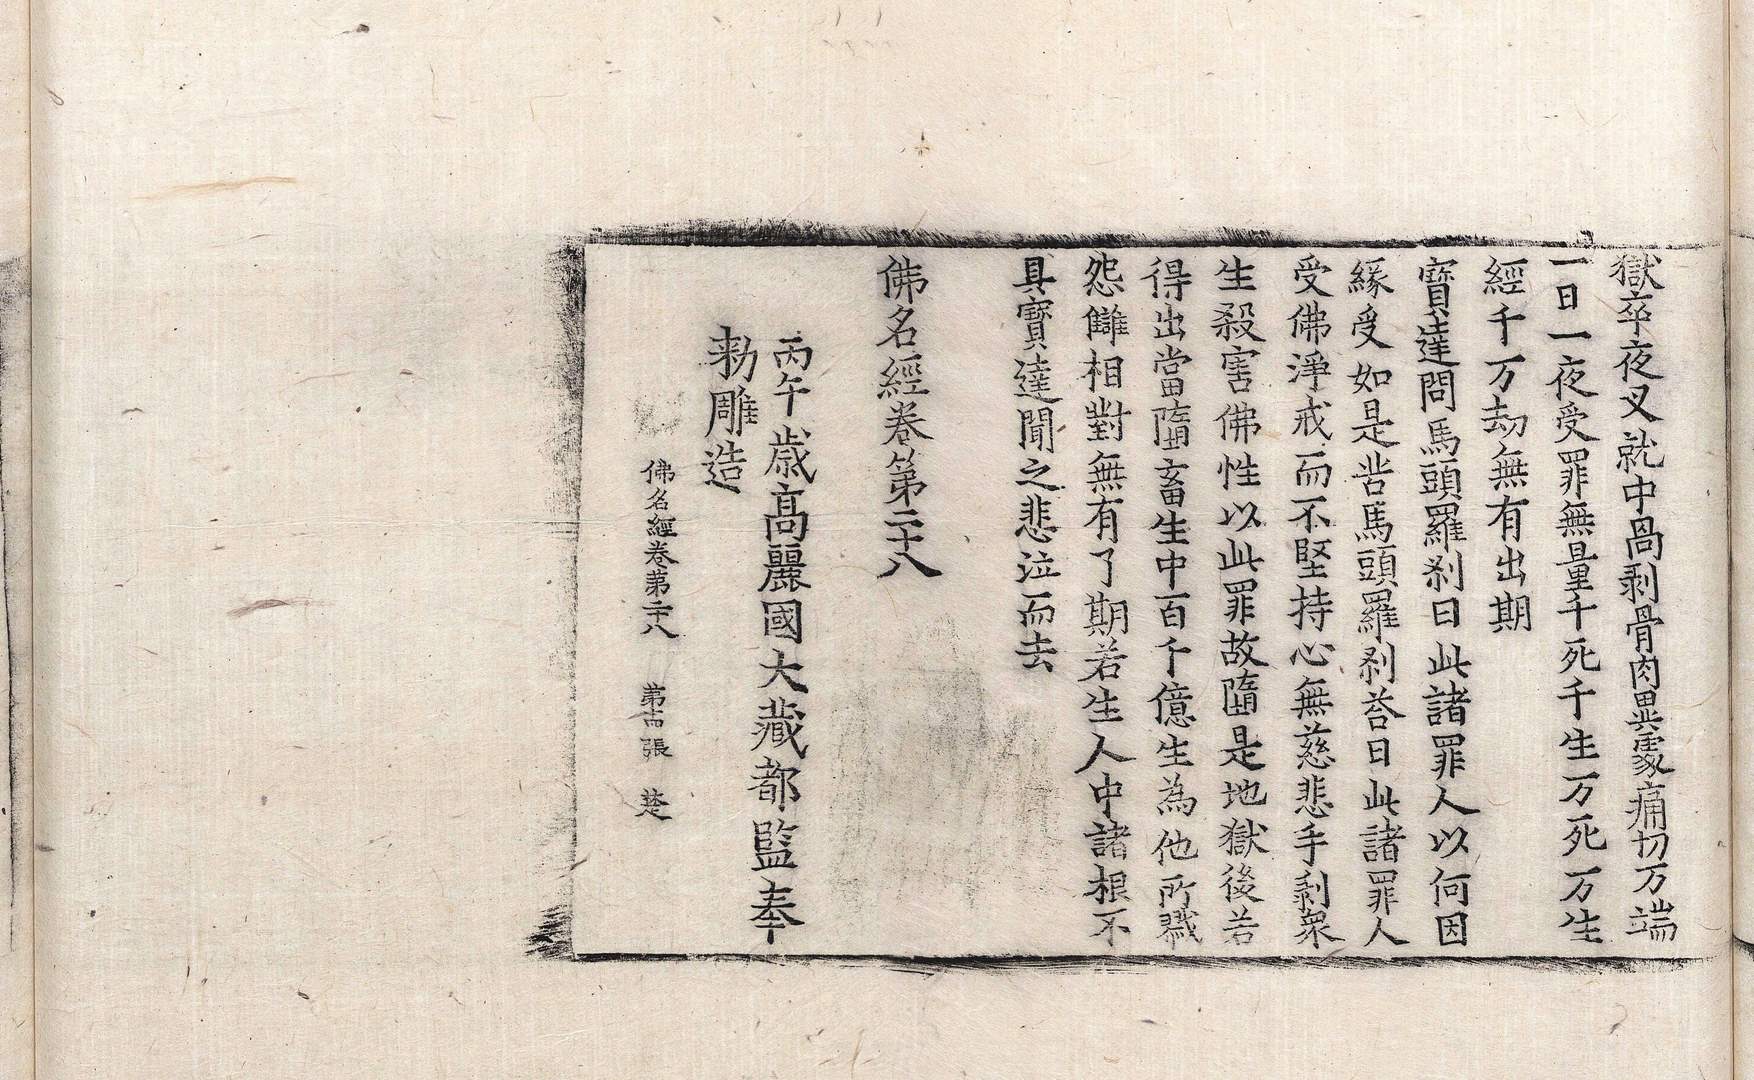 獄卒夜叉就中咼剥骨肉異處痛切万端
一日一夜受罪無量千死千生万死万生
經千万劫無有出期
寶達問馬頭羅刹曰此諸罪人以何因
緣受如是苦馬頭羅刹荅曰此諸罪人
受佛淨戒而不堅持心無慈悲手剥衆
生殺害佛性以此罪故墮是地獄後若
得出當墮畜生中百千億生為他所戮
怨讎相對無有了期若生人中諸根不
具寶達聞之悲泣而去
佛名經卷第二十八
丙午歲高麗國大藏都監奉
勑雕造
佛名經卷第二十八 第十四張 楚